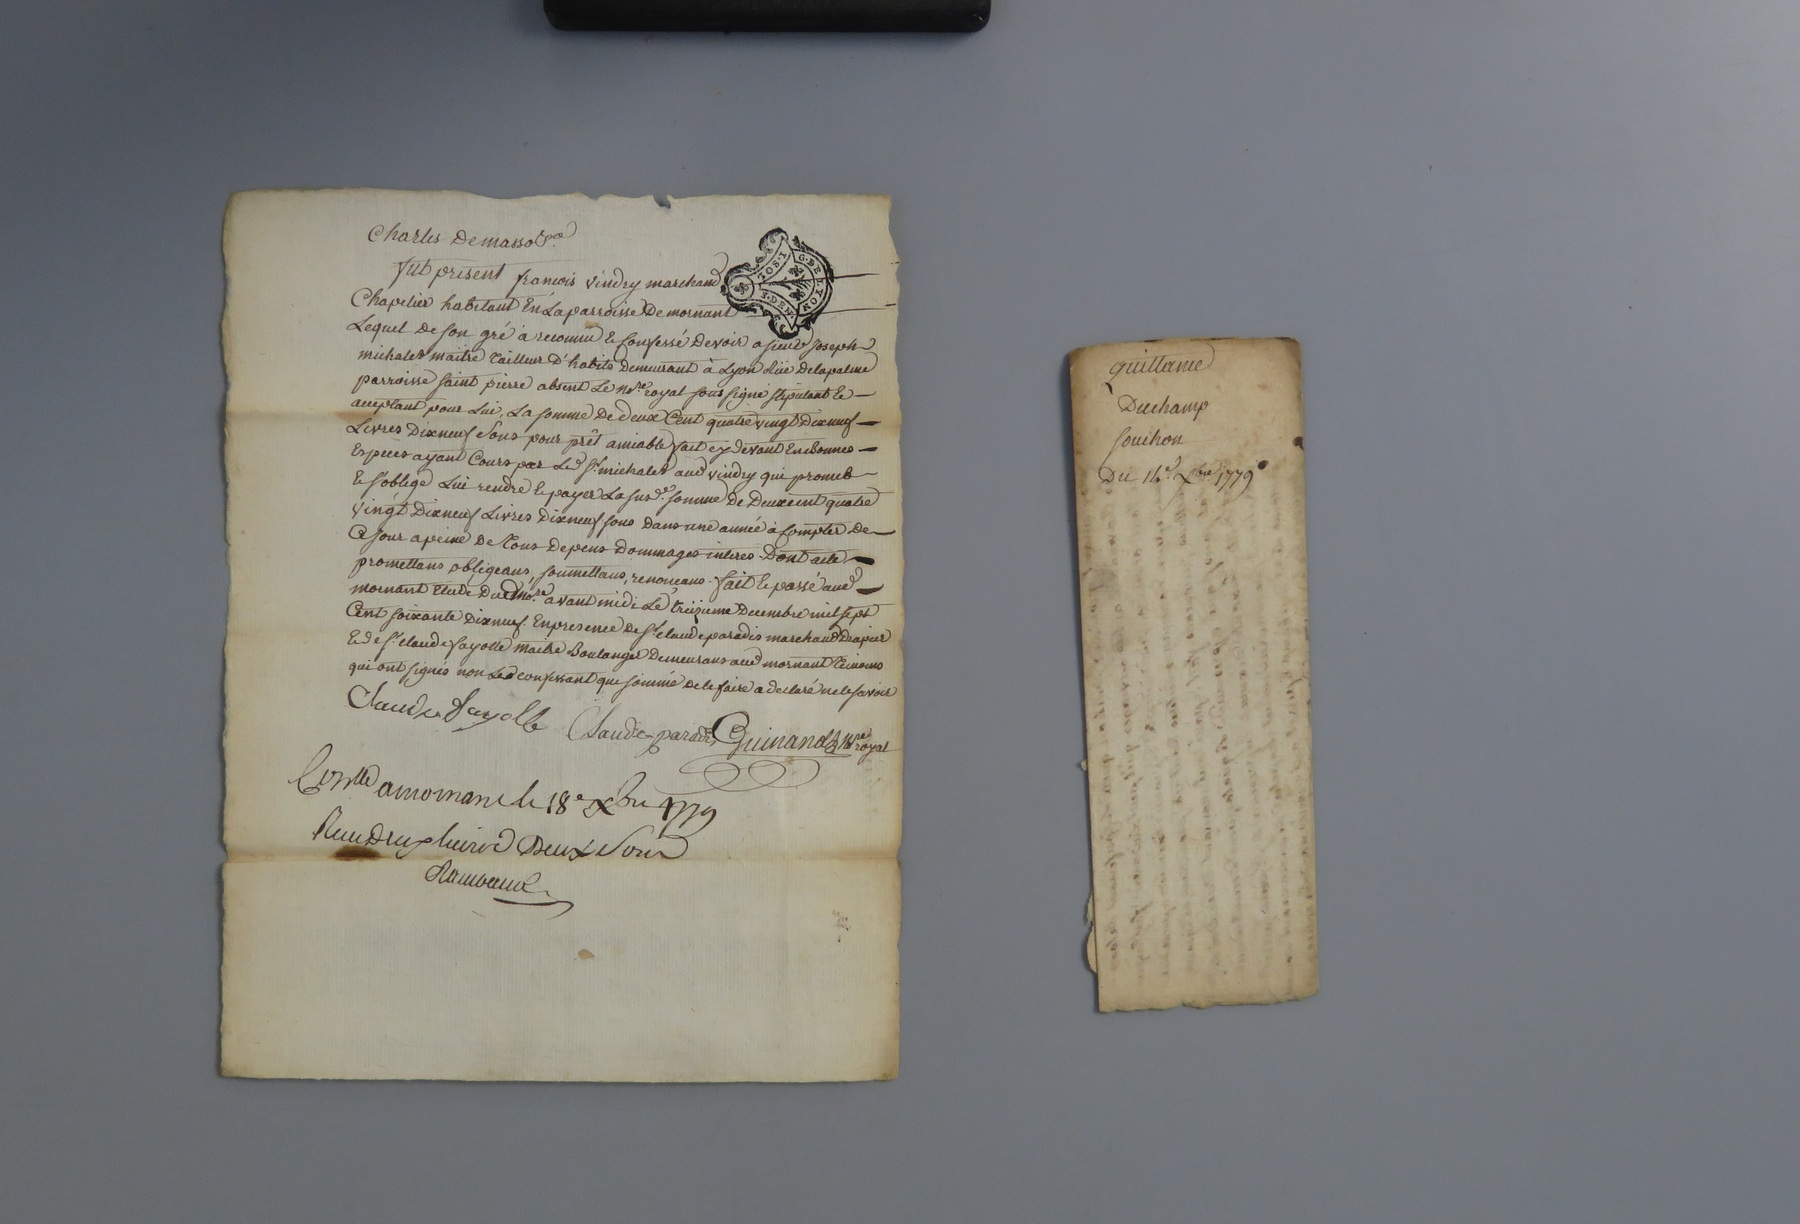 Charles Demasso
fut present francois vindry marchand
Chapelier habitant En La parroisse De mornant
Lequel De son gré à reconnu & Confessé Devoir a sieur Joseph
michalet maitre Tailleur D'habits demeurant à Lyon Rüe De la palme
parroisse saint pierre absent Le no.re royal soussigné stipulant &
acceptant pour Lui, La somme De deux Cent quatre vingt Dixneuf
Livres Dixneuf sous pour prêt amiable fait cy devant En bonnes
Especes ayant Cours par Led. Sr. michalet aud vindry qui promet
& s'oblige Lui rendre & payer La susd.e somme De Deux cent quatre
vingt Dixneuf Livres Dixneuf sous dans une année à Compter De
Ce jour a peine de Tous Depens Dommages interes. Dont acte
promettans, obligeans, soumettans, renonceans. fait & passé aud
mornant Etude Dud no.re avant midi Le treizieme Decembre mil sept
Cent soixante Dixneuf. En presence De Sr. claude paradis marchand Drapier
& de Sr. claude fayolle maitre Boulanger Demeurans aud mornant Temoins
qui ont signés non Led confessant que sommé de le faire a declaré ne le savoir
Claude Fayolle Claude paradis Guinand no.re royal
Con.lle a mornant le 18e Xbre 1779
Deux sous
TOS.1
G.DE LYON
S.DEN
quittance
Duchamp
Souchon
Du Xbre 1779